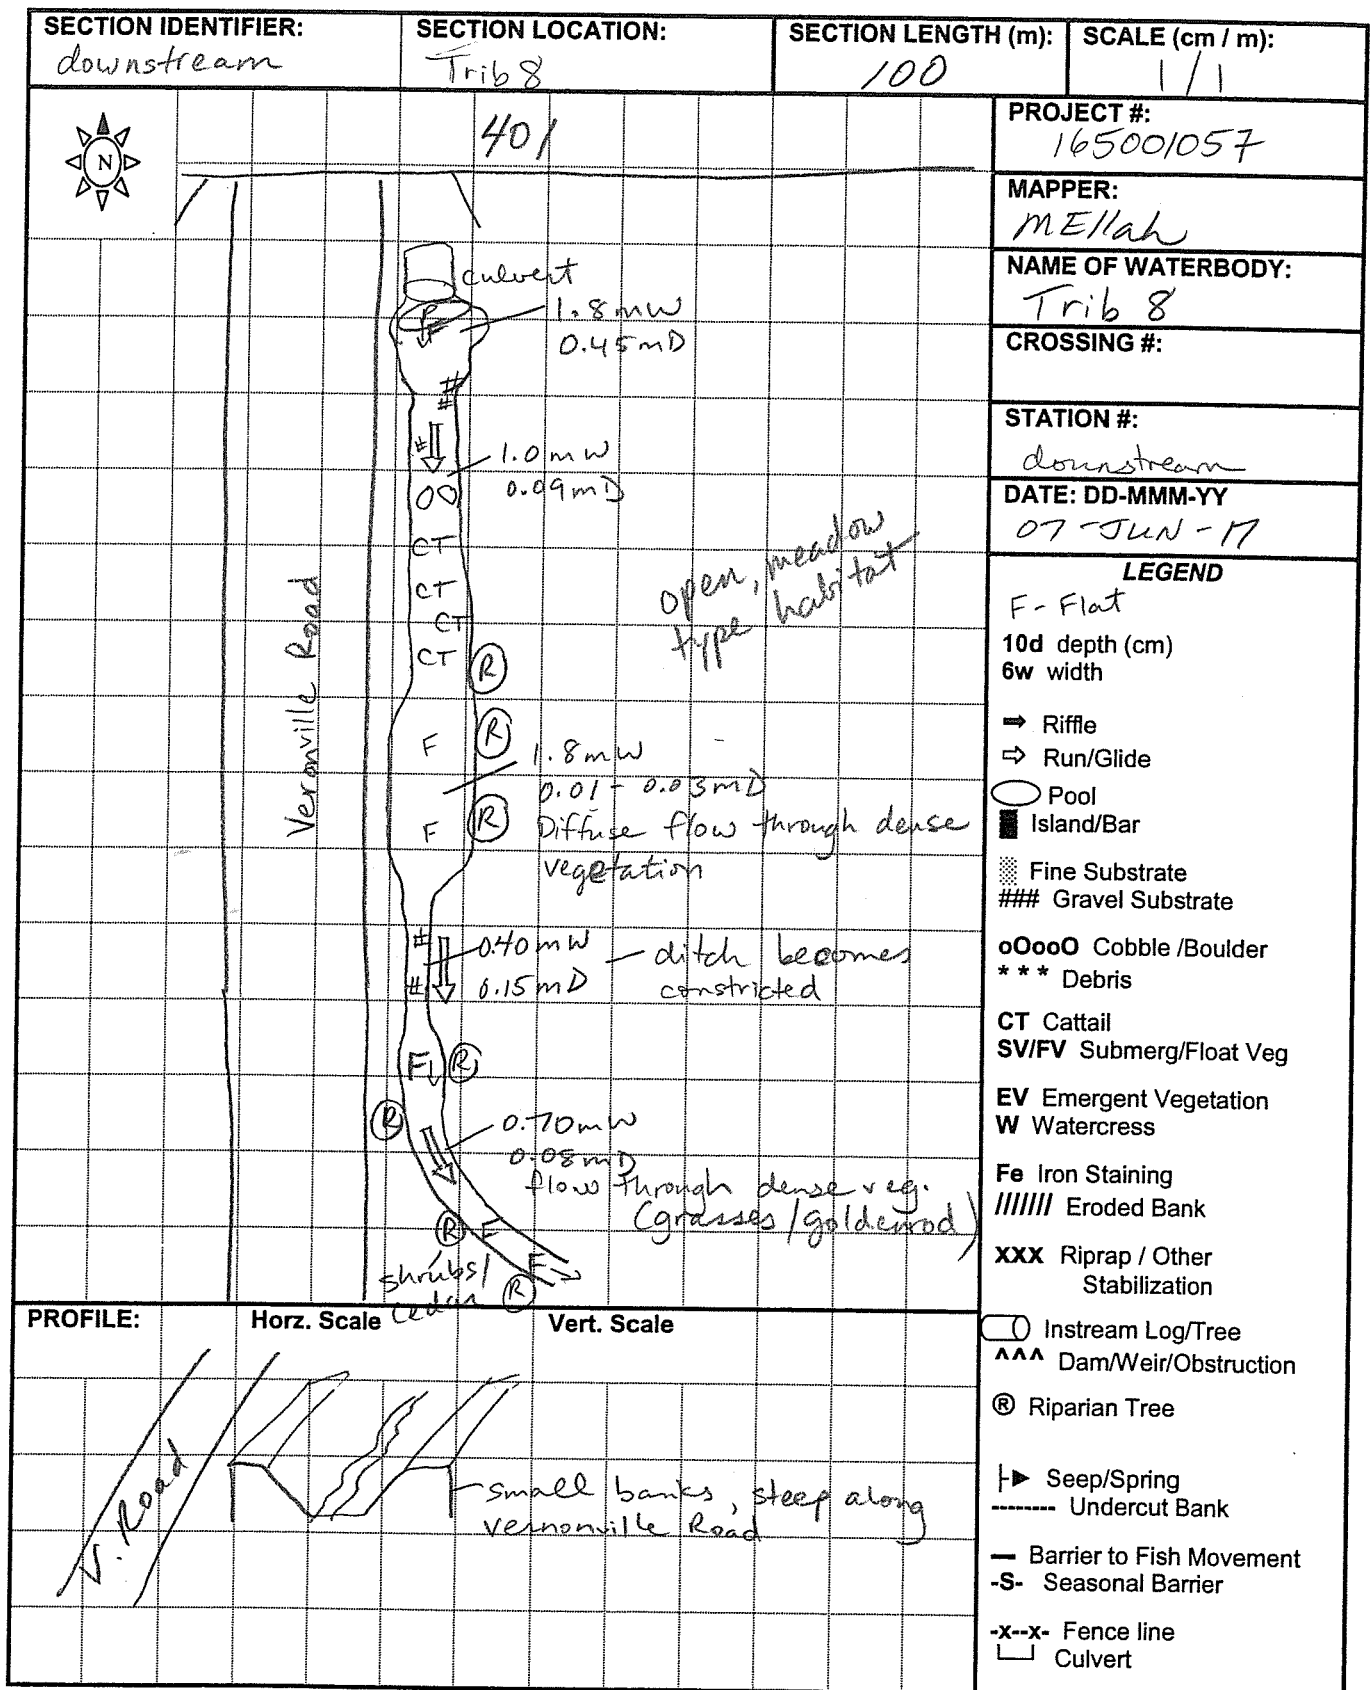 SECTION IDENTIFIER:
downstream
SECTION LOCATION:
Trib 8
SECTION LENGTH (m):
100
SCALE (cm / m):
1/1
N
401
culvert
P
1.8mW
0.45mD
##
#
#
1.0mW
0.09mD
OO
CT
CT
CT
CT
R
open, meadow
type habitat
Vernonville Road
F
R
1.8mW
0.01 - 0.03mD
F
R
Diffuse flow through dense
vegetation
#
0.40mW
ditch becomes
#
0.15mD
constricted
F
R
R
0.70mW
0.08mD
flow through dense veg.
(grasses/goldenrod)
R
F
F
shrubs/
cedar
R
PROJECT #:
165001057
MAPPER:
MEllah
NAME OF WATERBODY:
Trib 8
CROSSING #:
STATION #:
downstream
DATE: DD-MMM-YY
07-JUN-17
LEGEND
F - Flat
10d depth (cm)
6w width
Riffle
Run/Glide
Pool
Island/Bar
Fine Substrate
### Gravel Substrate
oOooO Cobble /Boulder
* * * Debris
CT Cattail
SV/FV Submerg/Float Veg
EV Emergent Vegetation
W Watercress
Fe Iron Staining
/////// Eroded Bank
XXX Riprap / Other
Stabilization
Instream Log/Tree
^^^ Dam/Weir/Obstruction
® Riparian Tree
Seep/Spring
-------- Undercut Bank
— Barrier to Fish Movement
-S- Seasonal Barrier
-x--x- Fence line
Culvert
PROFILE:
Horz. Scale
Vert. Scale
V. Road
small banks, steep along
Vernonville Road